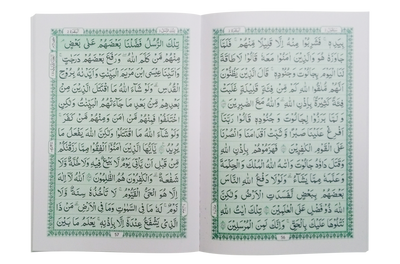 بِيَدِهٖ ۚ فَشَرِبُوْا مِنْهُ اِلَّا قَلِيْلًا مِّنْهُمْ ؕ فَلَمَّا
جَاوَزَهٗ هُوَ وَالَّذِيْنَ اٰمَنُوْا مَعَهٗ ۙ قَالُوْا لَا طَاقَةَ
لَنَا الْيَوْمَ بِجَالُوْتَ وَجُنُوْدِهٖ ؕ قَالَ الَّذِيْنَ يَظُنُّوْنَ
اَنَّهُمْ مُّلٰقُوا اللّٰهِ ۙ كَمْ مِّنْ فِئَةٍ قَلِيْلَةٍ غَلَبَتْ
فِئَةً كَثِيْرَةًۢ بِاِذْنِ اللّٰهِ ؕ وَاللّٰهُ مَعَ الصّٰبِرِيْنَ ۝
وَلَمَّا بَرَزُوْا لِجَالُوْتَ وَجُنُوْدِهٖ قَالُوْا رَبَّنَاۤ
اَفْرِغْ عَلَيْنَا صَبْرًا وَّثَبِّتْ اَقْدَامَنَا وَانْصُرْنَا
عَلَى الْقَوْمِ الْكٰفِرِيْنَ ۝ فَهَزَمُوْهُمْ بِاِذْنِ اللّٰهِ
وَقَتَلَ دَاوٗدُ جَالُوْتَ وَاٰتٰىهُ اللّٰهُ الْمُلْكَ وَالْحِكْمَةَ
وَعَلَّمَهٗ مِمَّا يَشَآءُ ؕ وَلَوْلَا دَفْعُ اللّٰهِ النَّاسَ
بَعْضَهُمْ بِبَعْضٍ لَّفَسَدَتِ الْاَرْضُ وَلٰكِنَّ
اللّٰهَ ذُوْ فَضْلٍ عَلَى الْعٰلَمِيْنَ ۝ تِلْكَ اٰيٰتُ اللّٰهِ
نَتْلُوْهَا عَلَيْكَ بِالْحَقِّ ؕ وَاِنَّكَ لَمِنَ الْمُرْسَلِيْنَ ۝
تِلْكَ الرُّسُلُ فَضَّلْنَا بَعْضَهُمْ عَلٰى بَعْضٍ
مِنْهُمْ مَّنْ كَلَّمَ اللّٰهُ وَرَفَعَ بَعْضَهُمْ دَرَجٰتٍ
وَاٰتَيْنَا عِيْسَى ابْنَ مَرْيَمَ الْبَيِّنٰتِ وَاَيَّدْنٰهُ بِرُوْحِ
الْقُدُسِ ؕ وَلَوْ شَآءَ اللّٰهُ مَا اقْتَتَلَ الَّذِيْنَ مِنْۢ
بَعْدِهِمْ مِّنْۢ بَعْدِ مَا جَآءَتْهُمُ الْبَيِّنٰتُ وَلٰكِنِ
اخْتَلَفُوْا فَمِنْهُمْ مَّنْ اٰمَنَ وَمِنْهُمْ مَّنْ كَفَرَ ؕ
وَلَوْ شَآءَ اللّٰهُ مَا اقْتَتَلُوْا وَلٰكِنَّ اللّٰهَ يَفْعَلُ مَا
يُرِيْدُ ۝ يٰۤاَيُّهَا الَّذِيْنَ اٰمَنُوْۤا اَنْفِقُوْا مِمَّا رَزَقْنٰكُمْ
مِّنْ قَبْلِ اَنْ يَّاْتِيَ يَوْمٌ لَّا بَيْعٌ فِيْهِ وَلَا خُلَّةٌ وَّلَا
شَفَاعَةٌ ؕ وَالْكٰفِرُوْنَ هُمُ الظّٰلِمُوْنَ ۝ اَللّٰهُ لَاۤ
اِلٰهَ اِلَّا هُوَ ۚ اَلْحَيُّ الْقَيُّوْمُ ۚ لَا تَاْخُذُهٗ سِنَةٌ وَّلَا
نَوْمٌ ؕ لَهٗ مَا فِي السَّمٰوٰتِ وَمَا فِي الْاَرْضِ ؕ مَنْ ذَا
الَّذِيْ يَشْفَعُ عِنْدَهٗۤ اِلَّا بِاِذْنِهٖ ؕ يَعْلَمُ مَا بَيْنَ